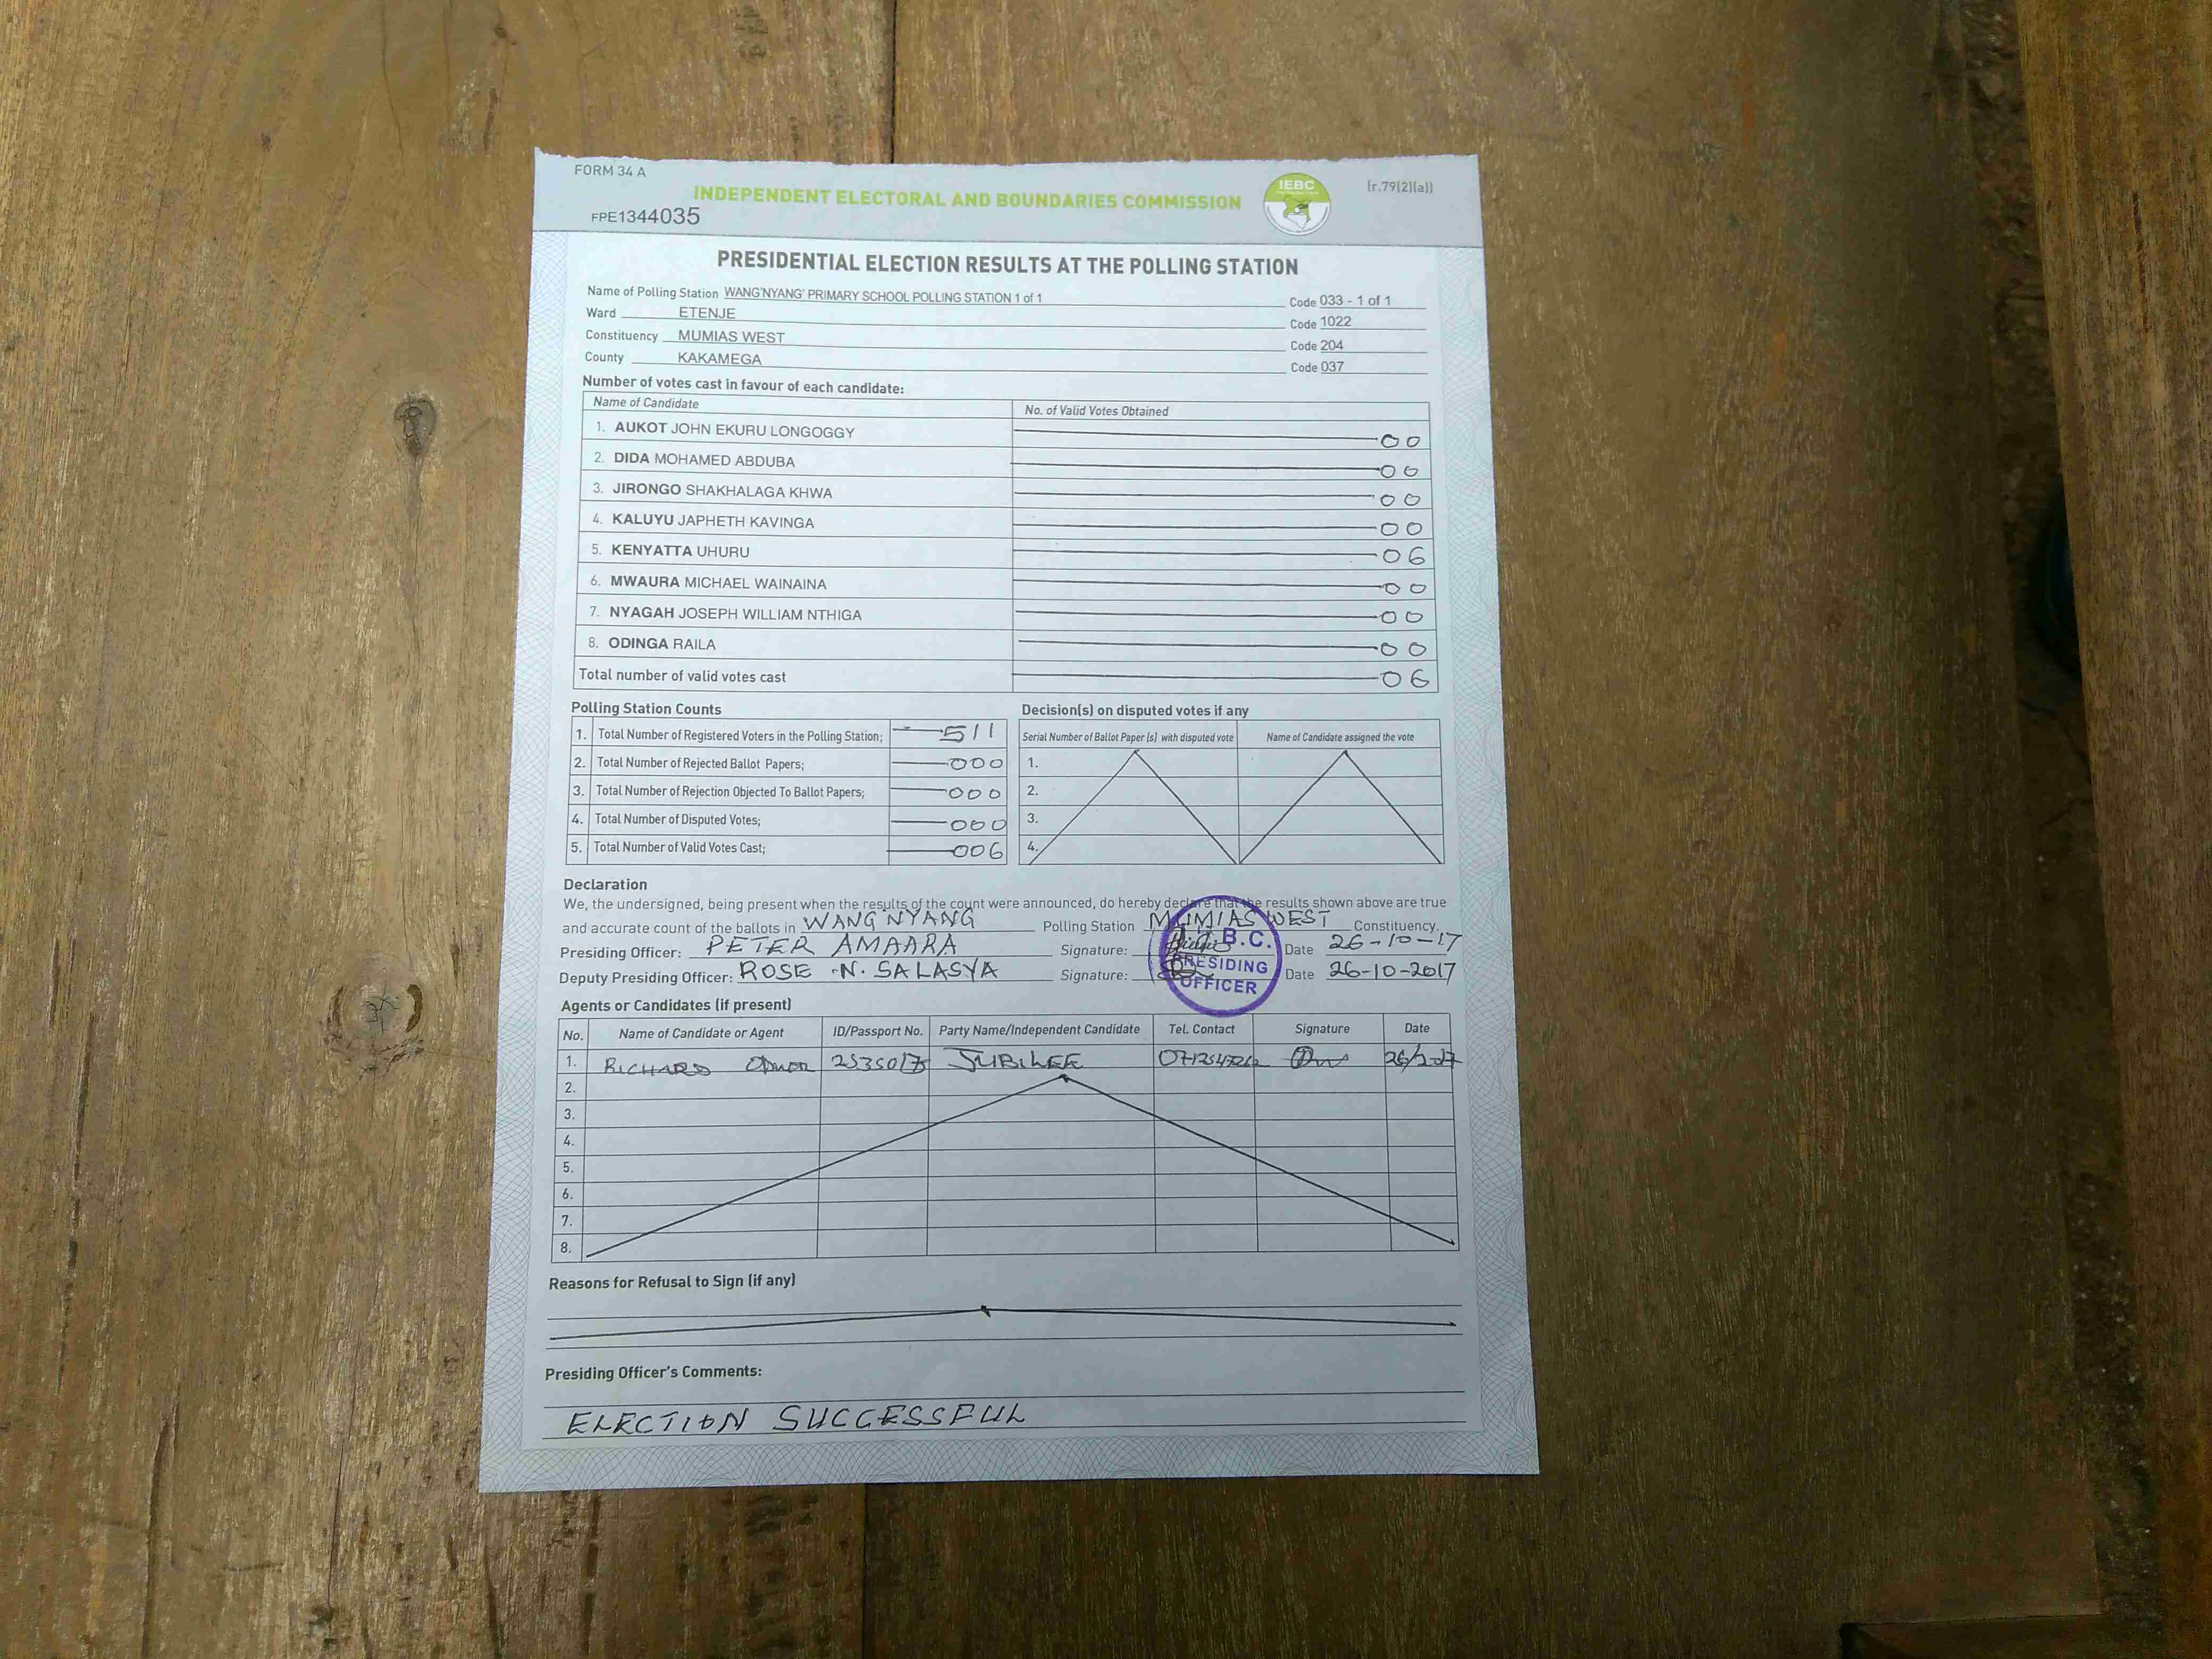 FORM 34 A
INDEPENDENT ELECTORAL AND BOUNDARIES COMMISSION
IEBC
(r.79(2)(a))
FPE1344035
PRESIDENTIAL ELECTION RESULTS AT THE POLLING STATION
Name of Polling Station WANG'NYANG' PRIMARY SCHOOL POLLING STATION 1 of 1 Code 033 - 1 of 1
Ward ETENJE Code 1022
Constituency MUMIAS WEST Code 204
County KAKAMEGA Code 037
Number of votes cast in favour of each candidate:
Name of Candidate No. of Valid Votes Obtained
1. AUKOT JOHN EKURU LONGOGGY 00
2. DIDA MOHAMED ABDUBA 00
3. JIRONGO SHAKHALAGA KHWA 00
4. KALUYU JAPHETH KAVINGA 00
5. KENYATTA UHURU 06
6. MWAURA MICHAEL WAINAINA 00
7. NYAGAH JOSEPH WILLIAM NTHIGA 00
8. ODINGA RAILA 00
Total number of valid votes cast 06
Polling Station Counts
1. Total Number of Registered Voters in the Polling Station; 511
2. Total Number of Rejected Ballot Papers; 000
3. Total Number of Rejection Objected To Ballot Papers; 000
4. Total Number of Disputed Votes; 000
5. Total Number of Valid Votes Cast; 006
Decision(s) on disputed votes if any
Serial Number of Ballot Paper (s) with disputed vote Name of Candidate assigned the vote
1.
2.
3.
4.
Declaration
We, the undersigned, being present when the results of the count were announced, do hereby declare that the results shown above are true
and accurate count of the ballots in WANG'NYANG Polling Station MUMIAS WEST Constituency.
Presiding Officer: PETER AMAARA Signature: Date 26-10-17
Deputy Presiding Officer: ROSE N. SALASYA Signature: Date 26-10-2017
B.C.
PRESIDING
OFFICER
Agents or Candidates (if present)
No. Name of Candidate or Agent ID/Passport No. Party Name/Independent Candidate Tel. Contact Signature Date
1. RICHARD JUBILEE
2.
3.
4.
5.
6.
7.
8.
Reasons for Refusal to Sign (if any)
Presiding Officer's Comments:
ELECTION SUCCESSFUL